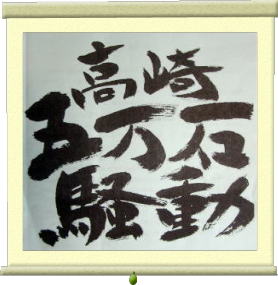 高崎
五万石
騒動